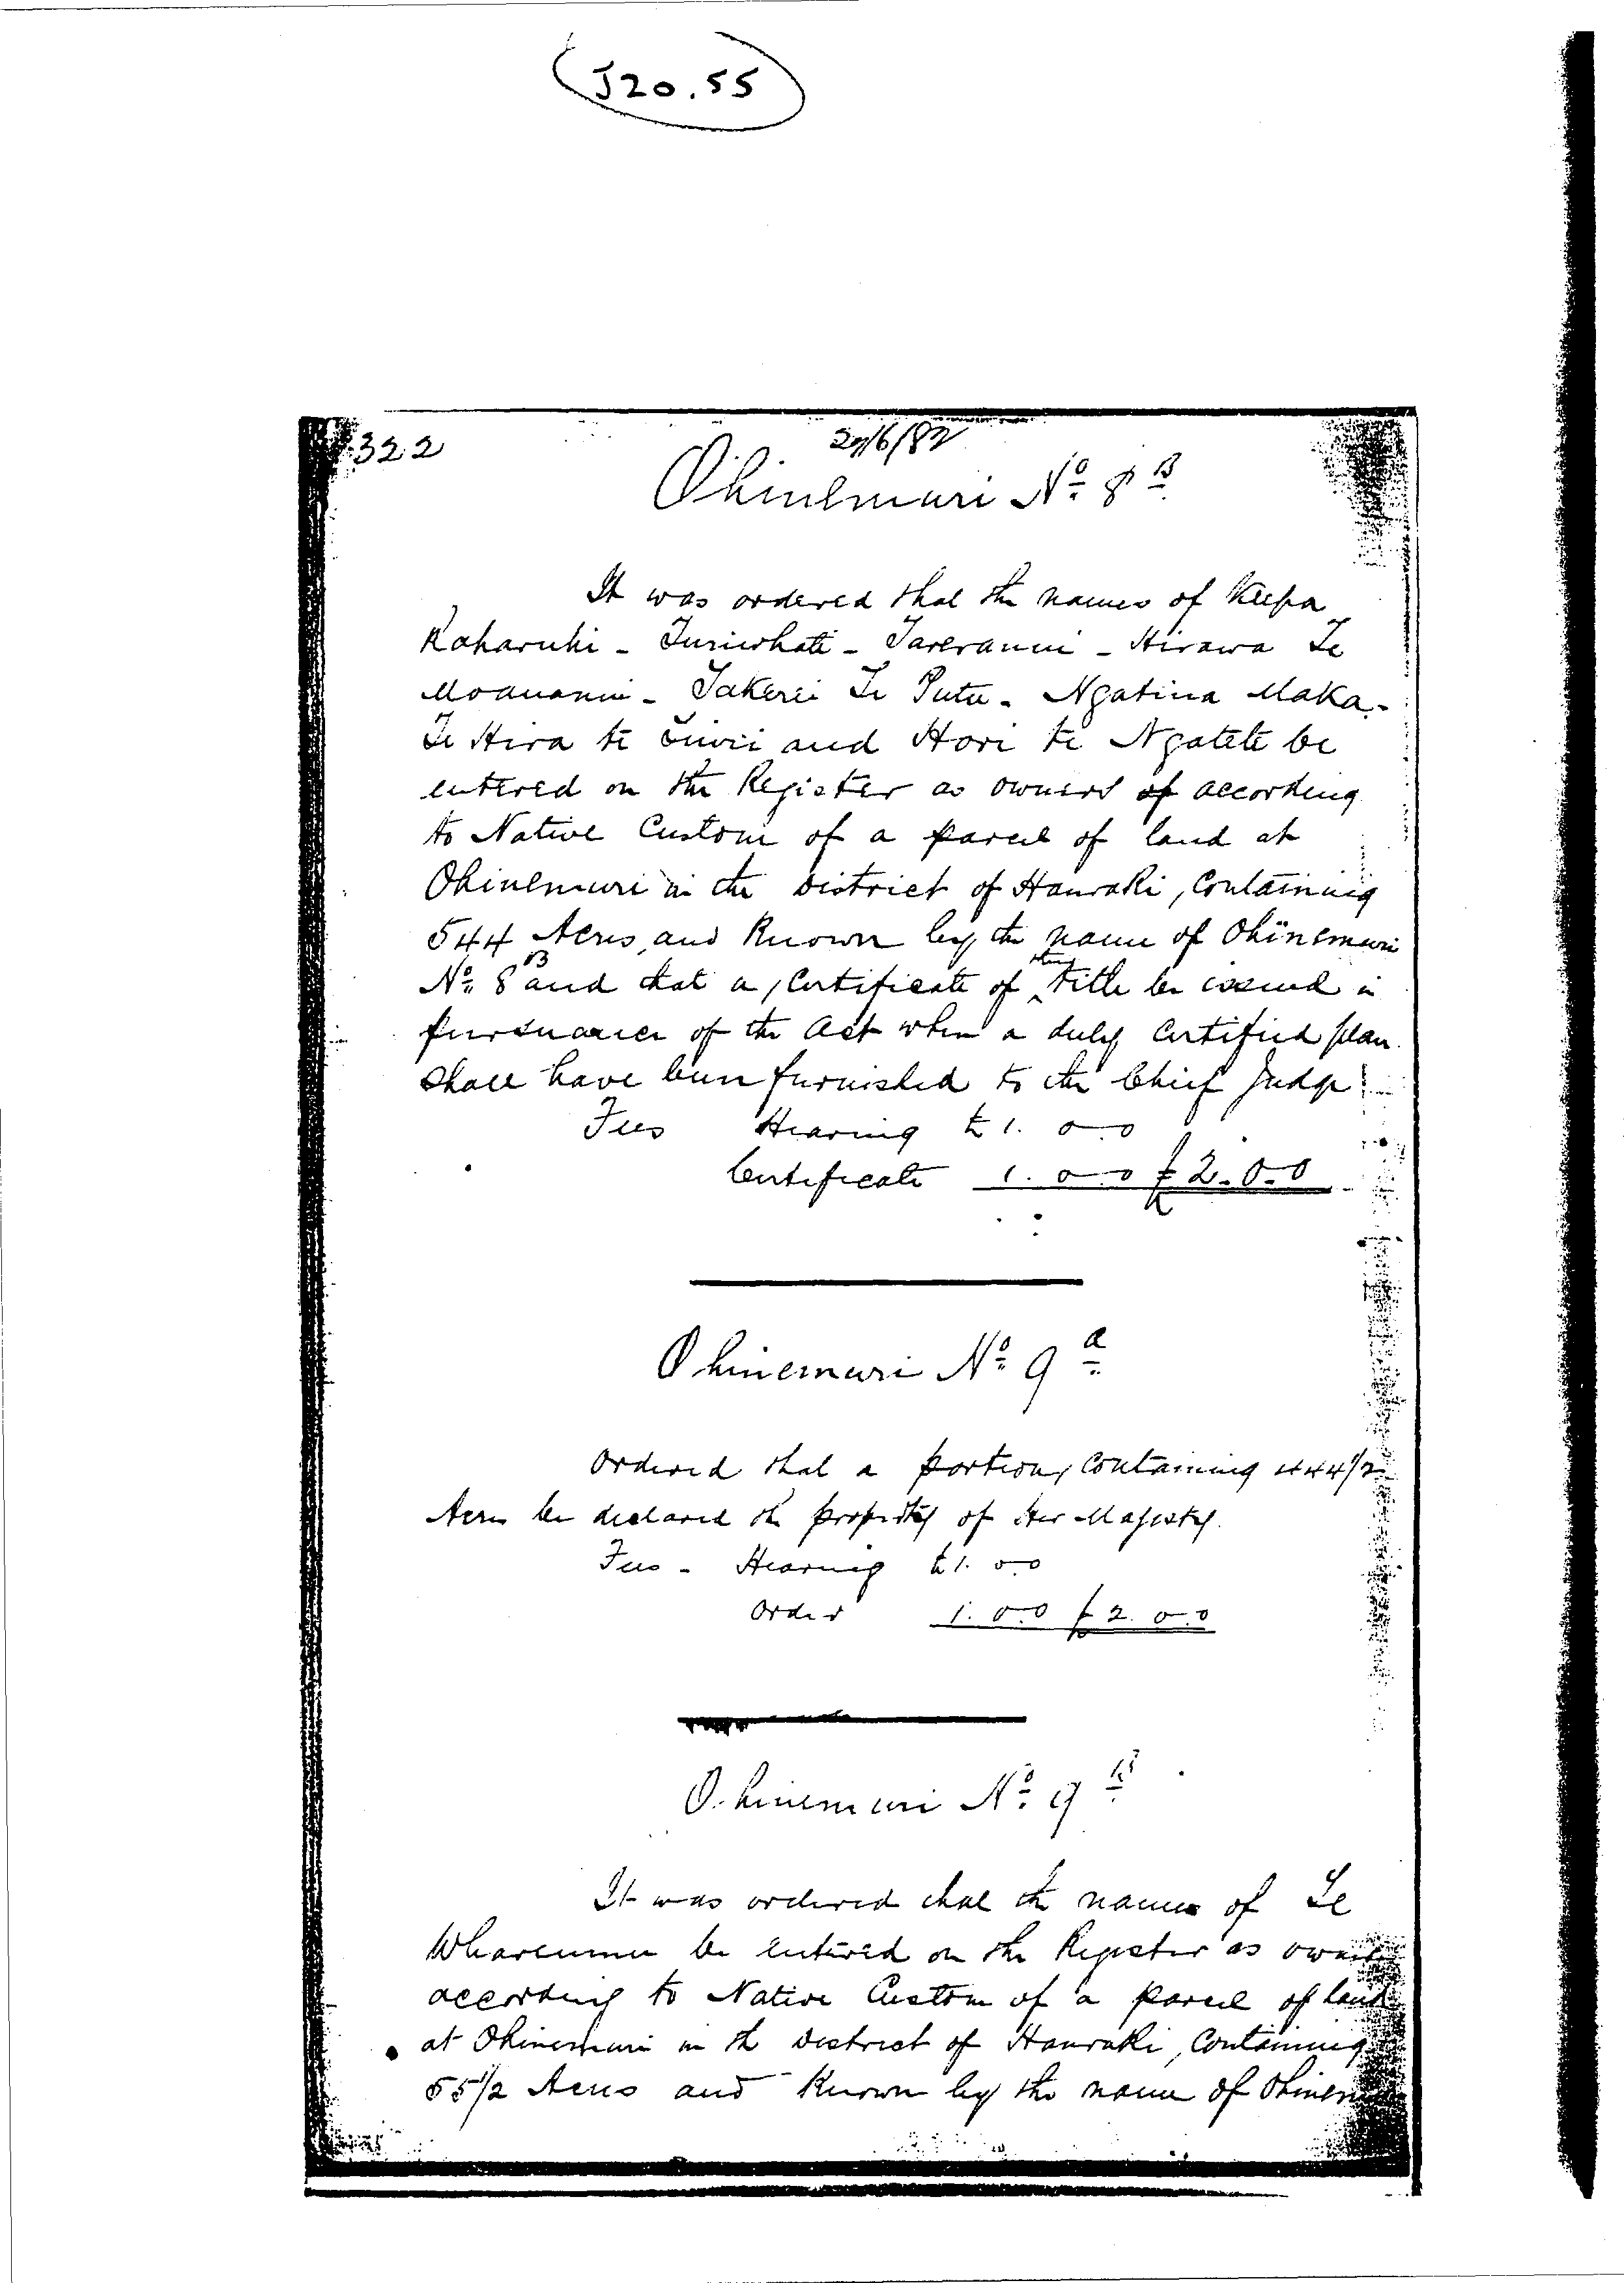 J20.55
322
29/6/82
Ohinemuri No. 8 B
It was ordered that the names of Keepa
Raharuhi - Turiwhati - Tareranui - Hirawa Te
Moananui - Takerei Te Putu - Ngatina Maka -
Te Hira te Tuiri and Hori te Ngatete be
entered on the Register as owners of according
to Native Custom of a parcel of land at
Ohinemuri in the District of Hauraki, Containing
544 Acres, and Known by the name of Ohinemuri
No. 8 B and that a Certificate of their Title be issued in
pursuance of the Act when a duly Certified plan
Shall have been furnished to the Chief Judge
Fees Hearing £1. 0.0
Certificate 1. 0.0 £2.0.0
Ohinemuri No. 9 a
Ordered that a portion, Containing 444 1/2
Acres be declared the property of Her Majesty.
Fees - Hearing £1. 0.0
Order 1. 0.0 £2. 0.0
Ohinemuri No. 9 B
It was ordered that the names of Te
Wharenui be entered on the Register as owner
according to Native Custom of a parcel of land
at Ohinemuri in the District of Hauraki, Containing
55 1/2 Acres and Known by the name of Ohinemuri